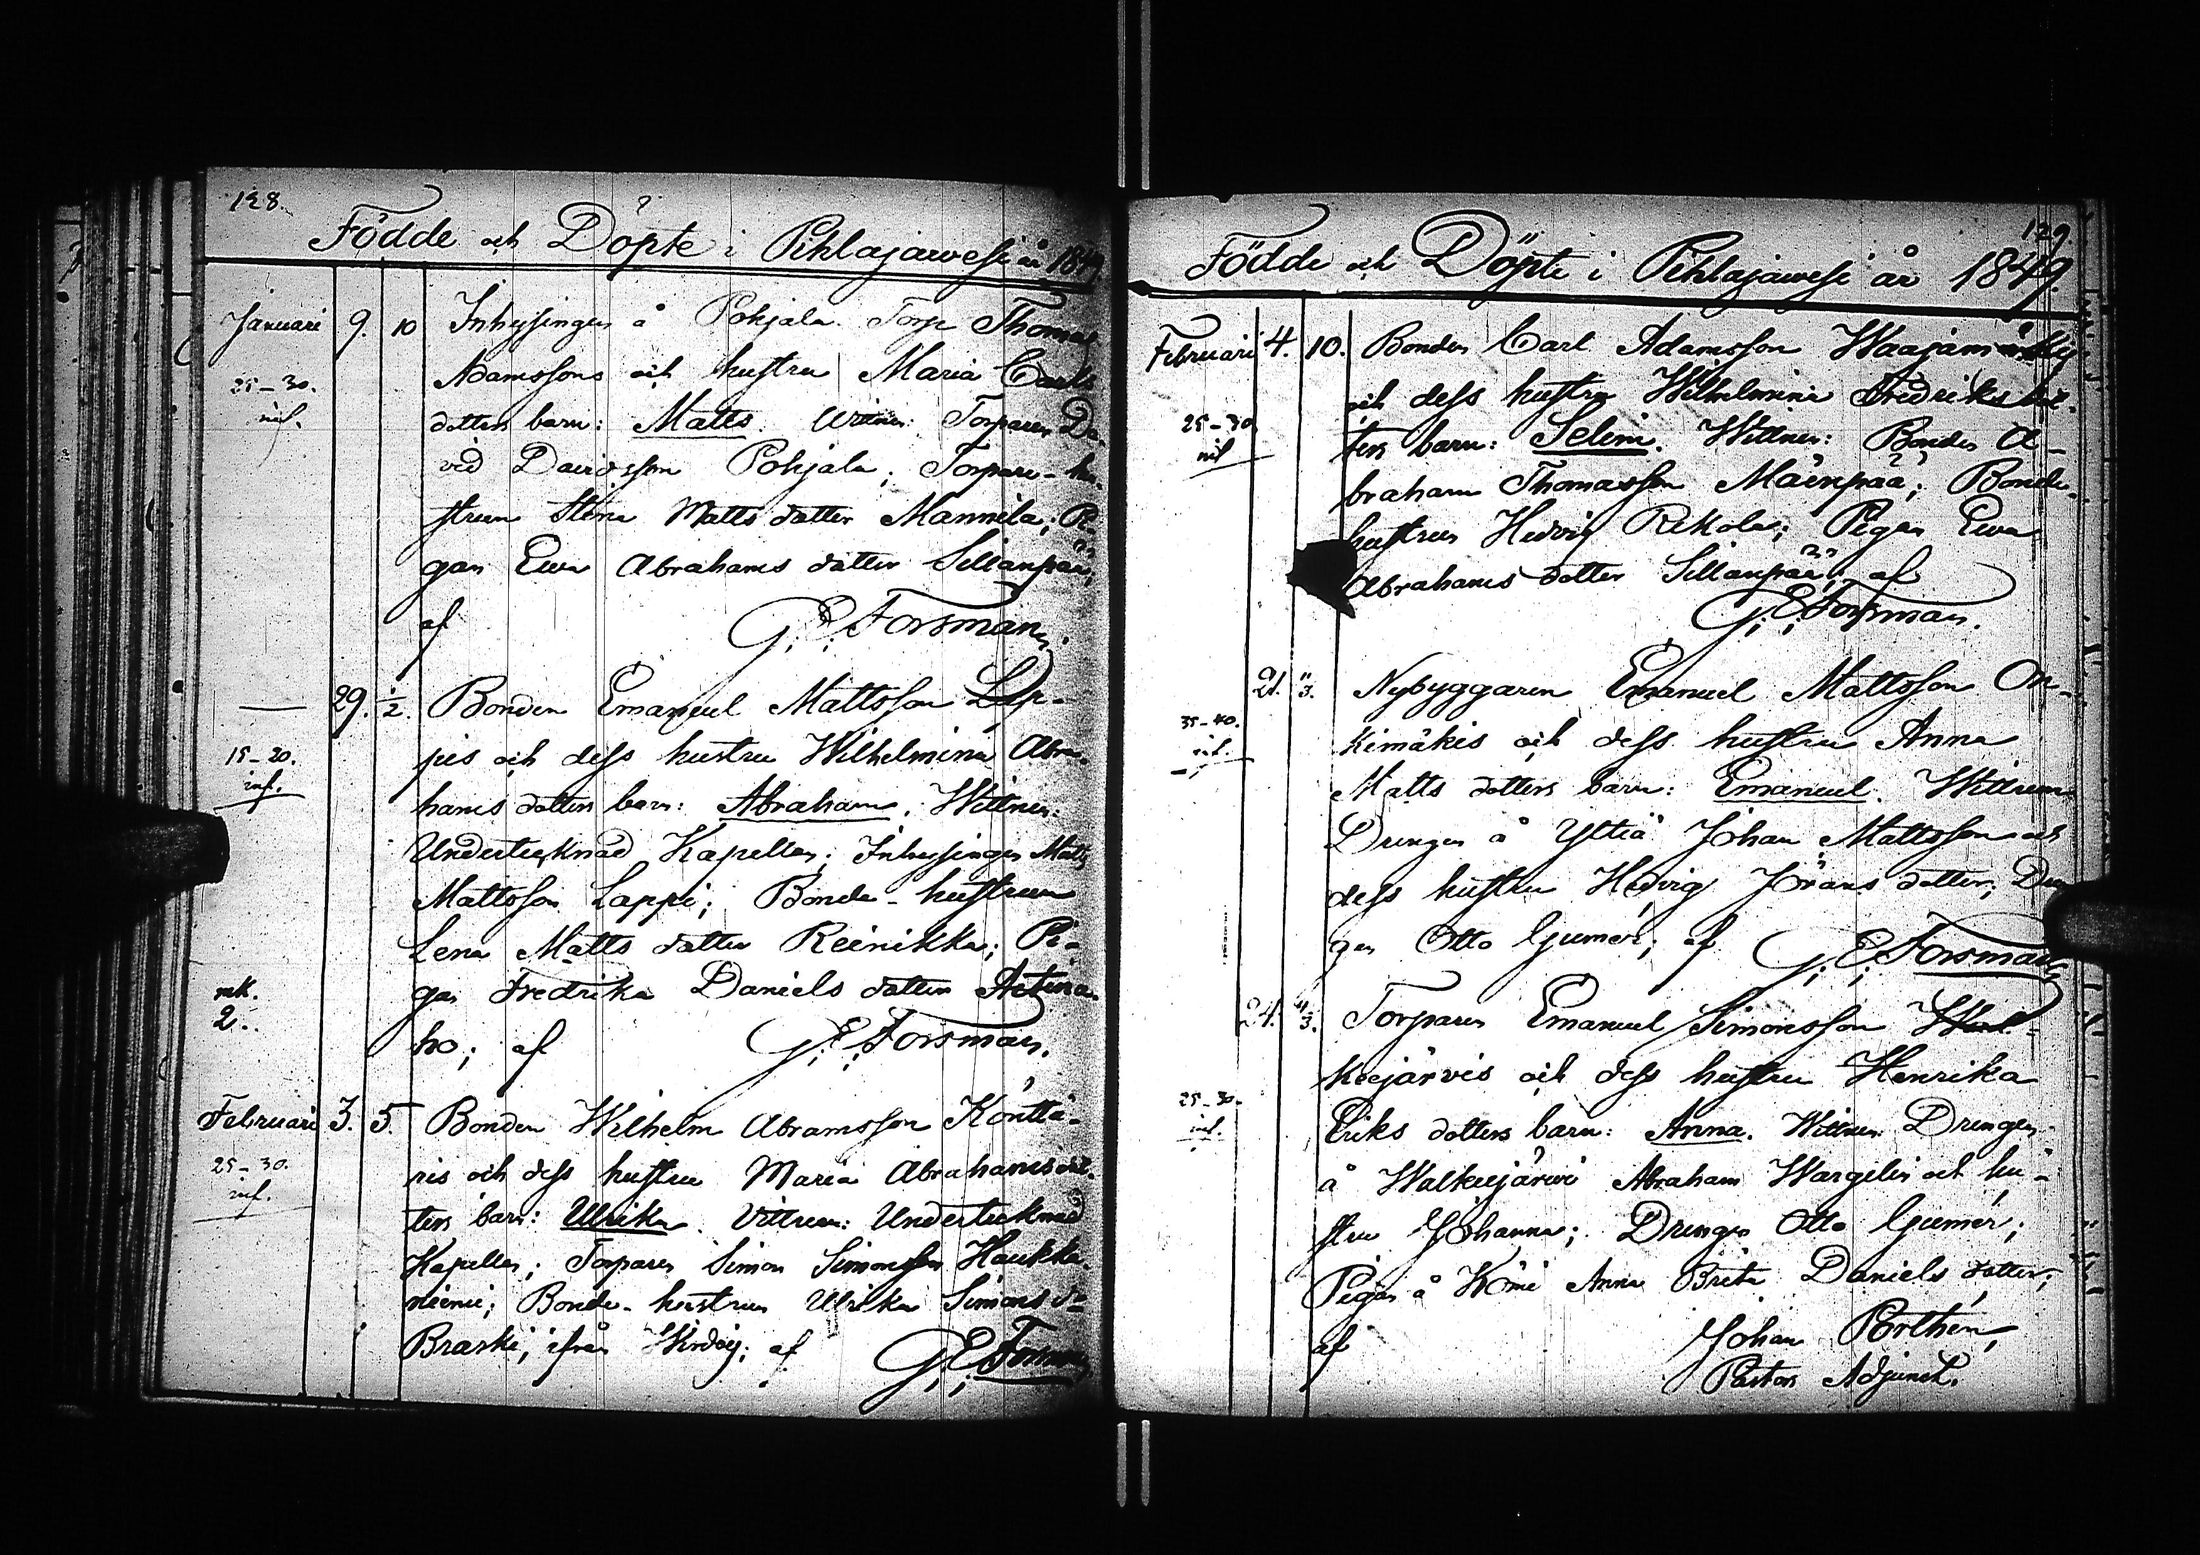 128.
Födde och Döpte i Pihlajawesi år 1849.
Januari 9. 10 Inhysingen å Pohjala Torp Thomas
25-30. Adamssons och hustru Maria Carls
inf. dotters barn: Matts. Wittnen: Torparen Da-
vid Davidsson Pohjala; Torpare-hu-
strun Stina Matts dotter Mannila; Pi-
gan Ewa Abrahams dotter Sillanpää;
af G. E. Forsman.
29. 1/2. Bonden Emanuel Mattsson Lap-
15-20. pis och dess hustru Wilhelmina Abra-
inf. hams dotters barn: Abraham. Wittnen:
Undertecknad Kapellan; Inhysingen Matts
Mattsson Lappi; Bonde-hustrun
Lena Matts dotter Reinikka; Pi-
mk. gan Fredrika Daniels dotter
2. ho; af G. E. Forsman.
Februari 3. 5. Bonden Wilhelm Abramsson Konttä-
25-30. ris och dess hustru Maria Abrahams dot-
inf. ters barn: Ulrika. Vittnen: Undertecknad
Kapellan; Torparen Simon Simonsson Haukka-
niemi; Bonde-hustrun Ulrika Simons dr
Braski, ifrån af G. E. Forsman
129.
Födde och Döpte i Pihlajawesi år 1849.
Februari 4. 10. Bonden Carl Adamsson
och dess hustru Wilhelmina Fredriks dot-
25-30 ters barn: Selim. Wittnen: Bonden A-
inf braham Thomasson Mäenpää; Bonde-
hustrun Hedvig Rekola; Pigan Ewa
Abrahams dotter Sillanpää; af
G. E. Forsman.
21. 4/3. Nybyggaren Emanuel Mattsson On-
35-40. kimäkis och dess hustru Anna
inf. Matts dotters barn: Emanuel. Wittnen
Drengen å Johan Mattsson och
dess hustru Hedvig Jörans dotter; Dren-
gen Otto Gumér; af G. E. Forsman
24. 4/3. Torparen Emanuel Simonsson Wal-
keejärvis och dess hustru Henrika
25-30. Eriks dotters barn: Anna. Wittnen Drengen
inf. å Walkeejärwi Abraham Wargelin och hu-
stru Johanna; Drengen Otto Gumér;
Pigan å Anna Brita Daniels dotter;
af Johan Porthén,
Pastors Adjunct.